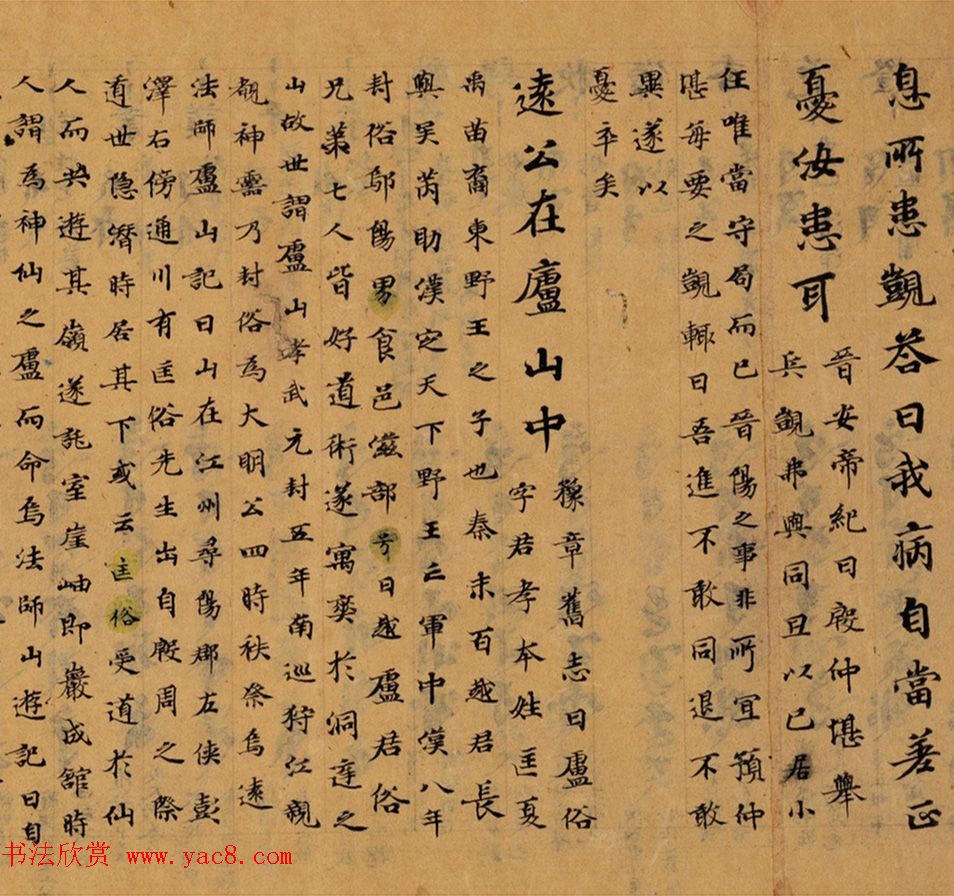 息所患覬荅曰我病自當差正
憂汝患耳
晉安帝紀曰殷仲堪舉
兵覬弗與同且以己居小
任唯當守局而已晉陽之事非所宜預仲
堪每要之覬輒曰吾進不敢同退不敢
異遂以
憂卒矣
遠公在廬山中
豫章舊志曰廬俗
字君孝本姓匡夏
禹苗裔東野王之子也秦末百越君長
與吴芮助漢定天下野王亡軍中漢八年
封俗鄔陽男食邑滋部号曰越廬君俗
兄弟七人皆好道術遂寓奕於洞庭之
山故世謂廬山孝武元封五年南巡狩江親
覩神霊乃封俗為大明公四時秩祭焉遠
法師廬山記曰山在江州尋陽郡左侠彭
澤右傍通川有匡俗先生出自殷周之際
遁世隐潜時居其下或云匡俗受道於仙
人而共遊其嶺遂託室崖岫即巖成舘時
人謂為神仙之廬而命焉法師山遊記曰自
书法欣赏 www.yac8.com